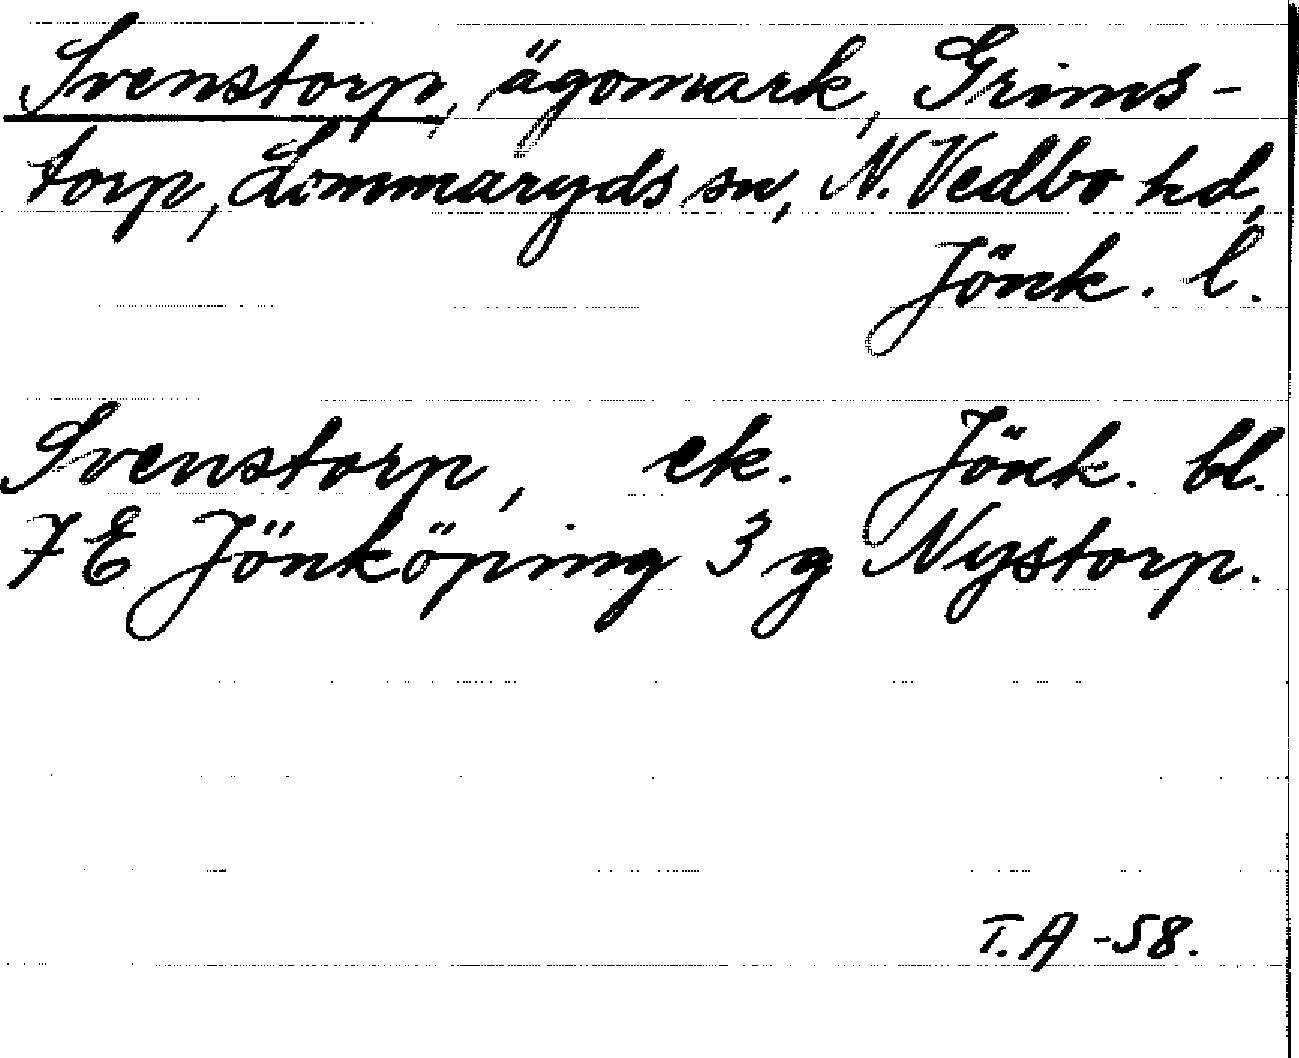 Svenstorp, ägomark, Grims-
torp, Lommaryds sn, N. Vedbo hd,
Jönk. l.
Svenstorp, ek. Jönk. bl.
7 E Jönköping 3 g Nystorp.
T.A -58.